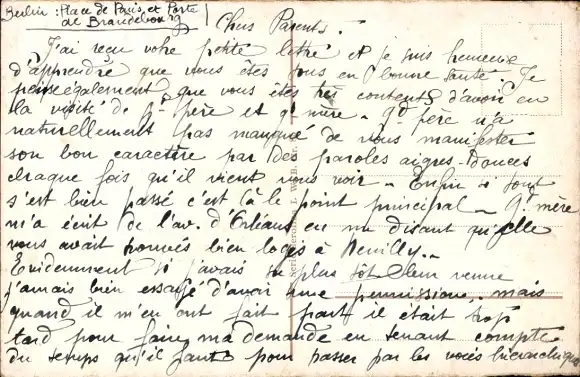 Berlin : Place de Paris, et Porte
de Brandebourg
Chers Parents.
J'ai reçu votre petite lettre et je suis heureux
d'apprendre que vous êtes tous en bonne santé. Je
pense également que vous êtes très contents d'avoir eu
la visite de Gd père et gd mère. Gd père n'a
naturellement pas manqué de vous manifester
son bon caractère par des paroles aigres-douces
chaque fois qu'il vient vous voir. Enfin si tout
s'est bien passé c'est là le point principal. Gd mère
m'a écrit de l'av. d'Orléans en me disant qu'elle
vous avait trouvés bien logés à Neuilly.
Evidemment si j'avais su plus tôt leur venue
j'aurais bien essayé d'avoir une permission, mais
quand il m'en ont fait part il était trop
tard pour faire ma demande en tenant compte
du temps qu'il faut pour passer par les voies hiérarchiques